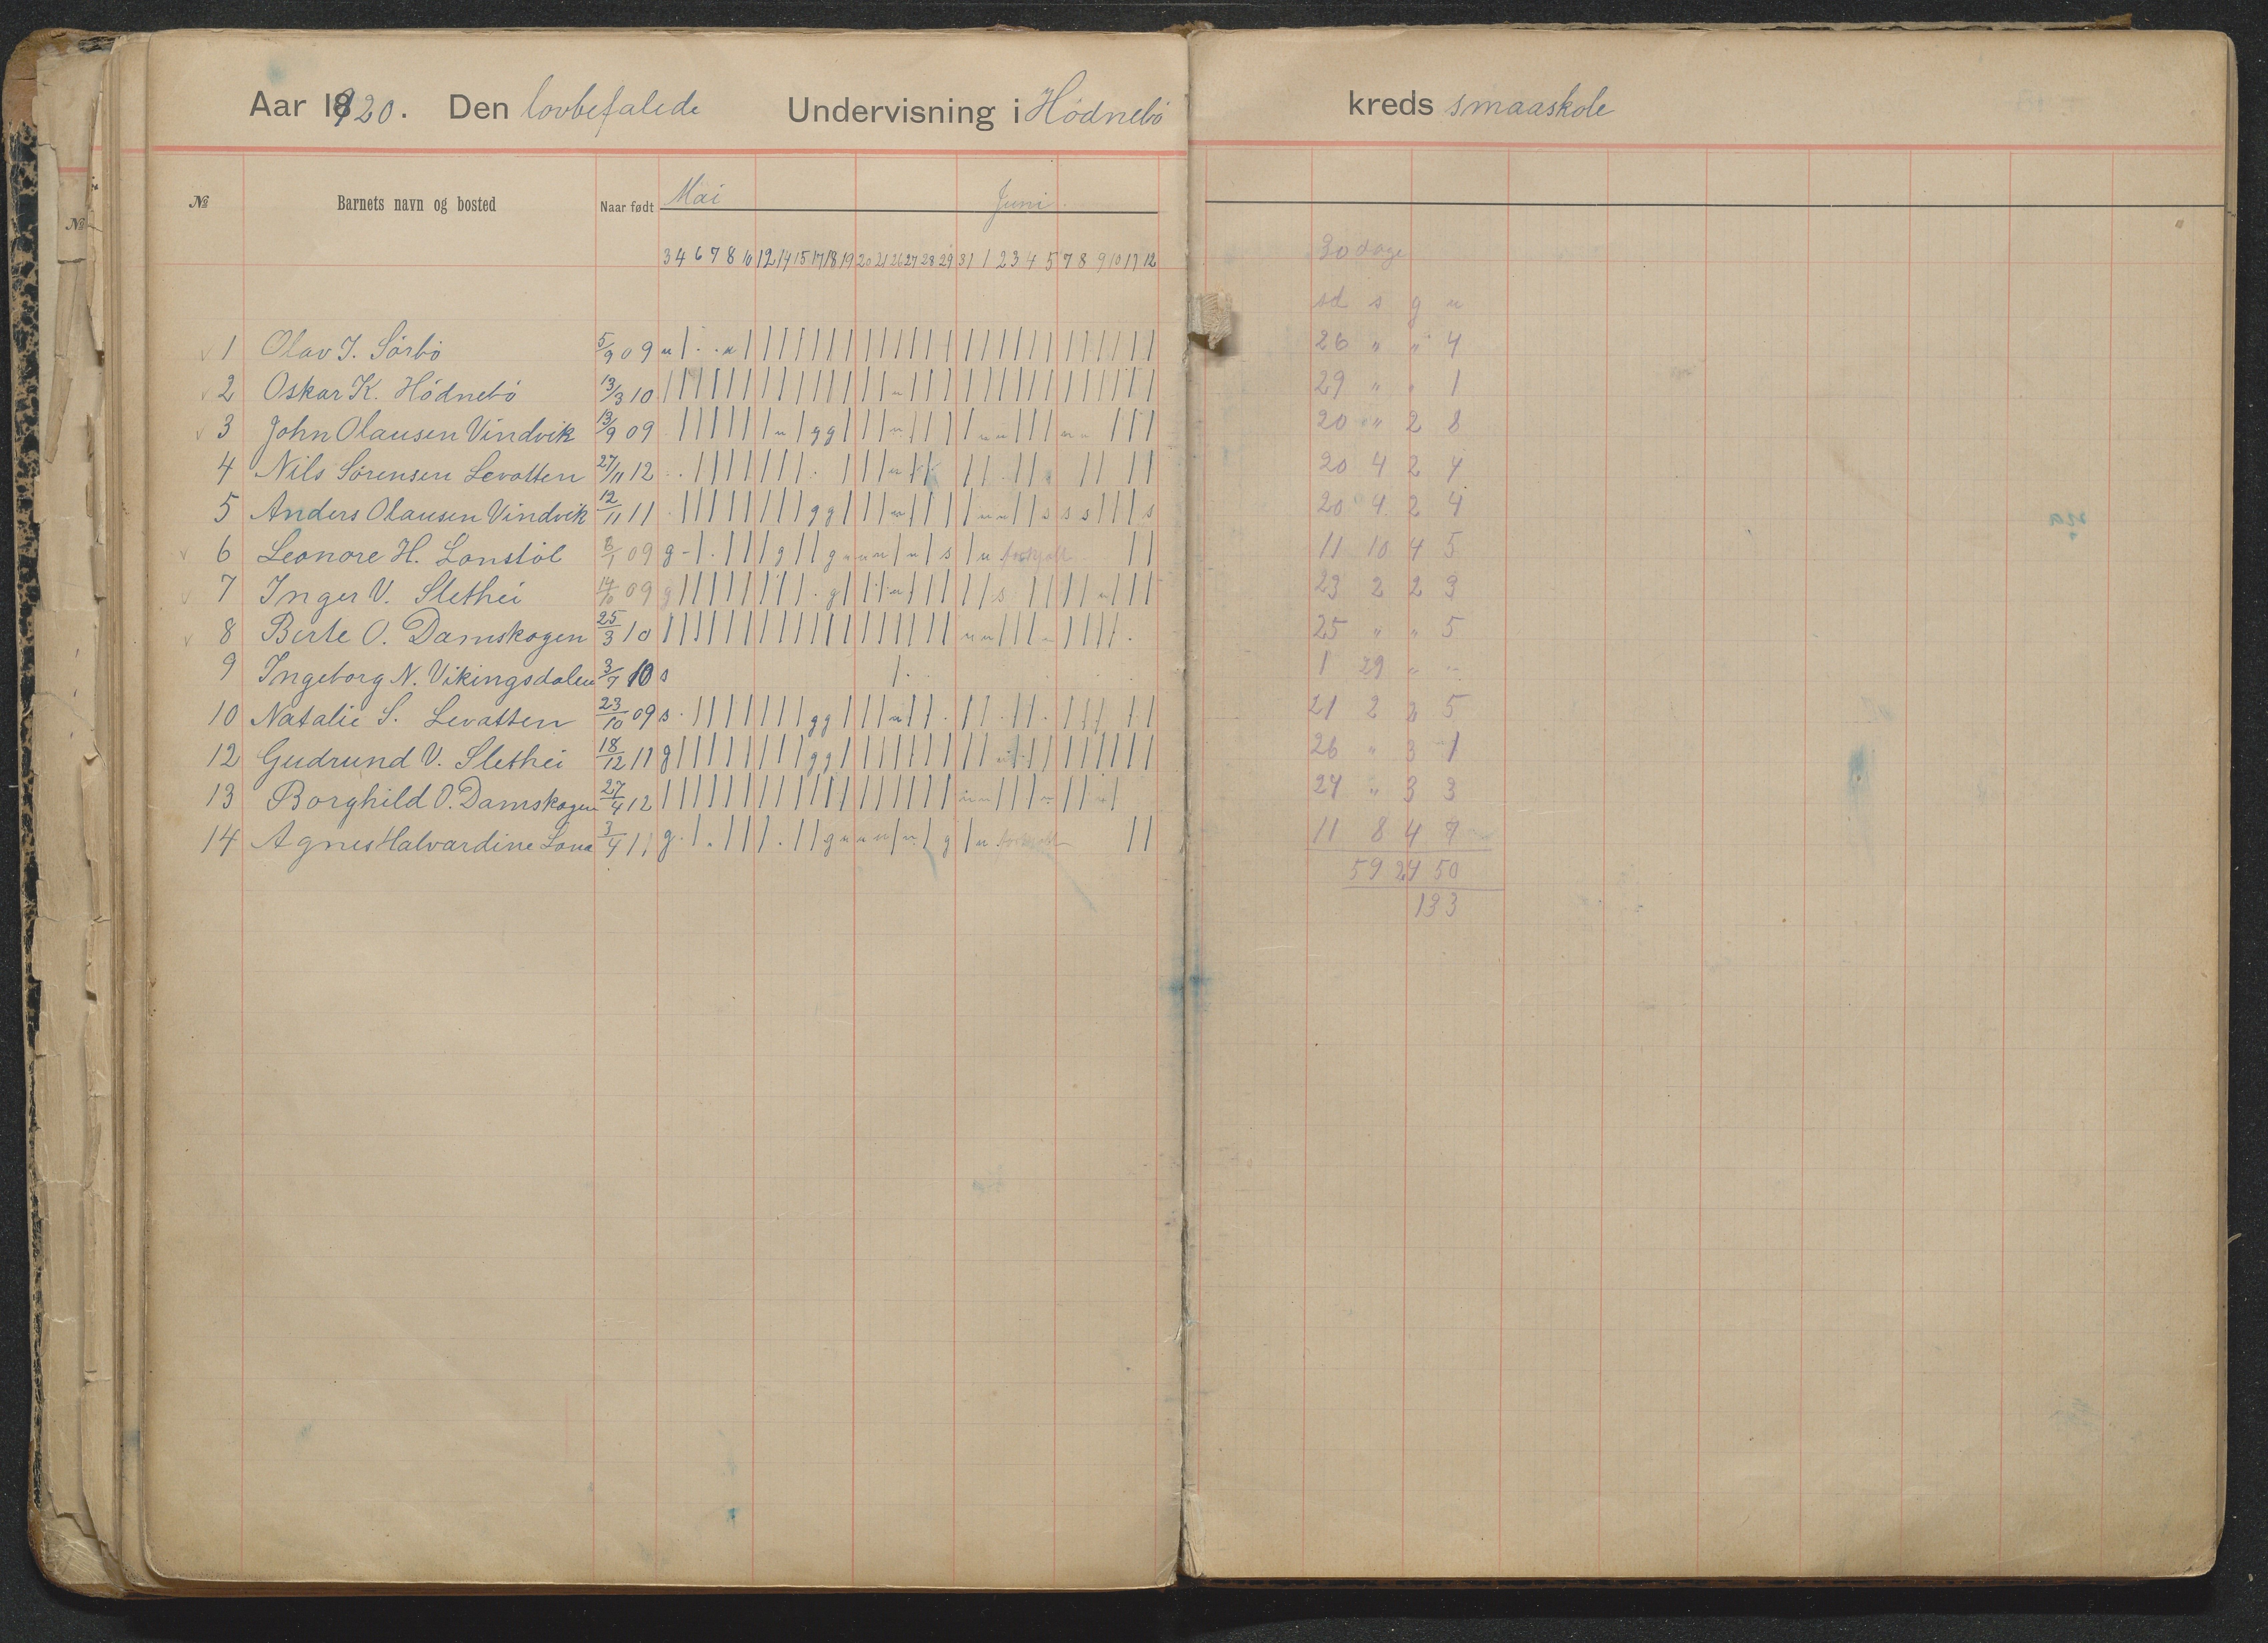 Aar 1920. Den lovbefalede Undervisning i Hødnebø kreds smaaskole
№ Barnets navn og bosted Naar født Mai Juni
№
3 4 6 7 8 10 12 14 15 17 18 19 20 21 26 27 28 29 31 1 2 3 4 5 7 8 9 10 11 12 30 dage
sd s g u
1 Olav J. Sørbø 5/9 09 26 " " 4
2 Oskar K. Hødnebø 13/3 10 29 " " 1
3 John Olausen Vindvik 13/9 09 20 " 2 8
4 Nils Sørensen Levatten 27/11 12 20 4 2 4
5 Anders Olausen Vindvik 12/11 11 20 4 2 4
6 Leonore H. Lonstøl 8/1 09 11 10 4 5
7 Inger V. Slethei 09 23 2 2 3
8 Berte O. Damskogen 25/3 10 25 " " 5
9 Ingeborg N. Vikingsdalen 3/7 10 s 1 29 " "
10 Natalie S. Levatten 23/10 09 21 2 2 5
12 Gudrund V. Slethei 18/12 11 26 " 3 1
13 Borghild O. Damskogen 27/4 12 24 " 3 3
14 Agnes Halvardine Lona 3/4 11 11 8 4 7
59 24 50
133